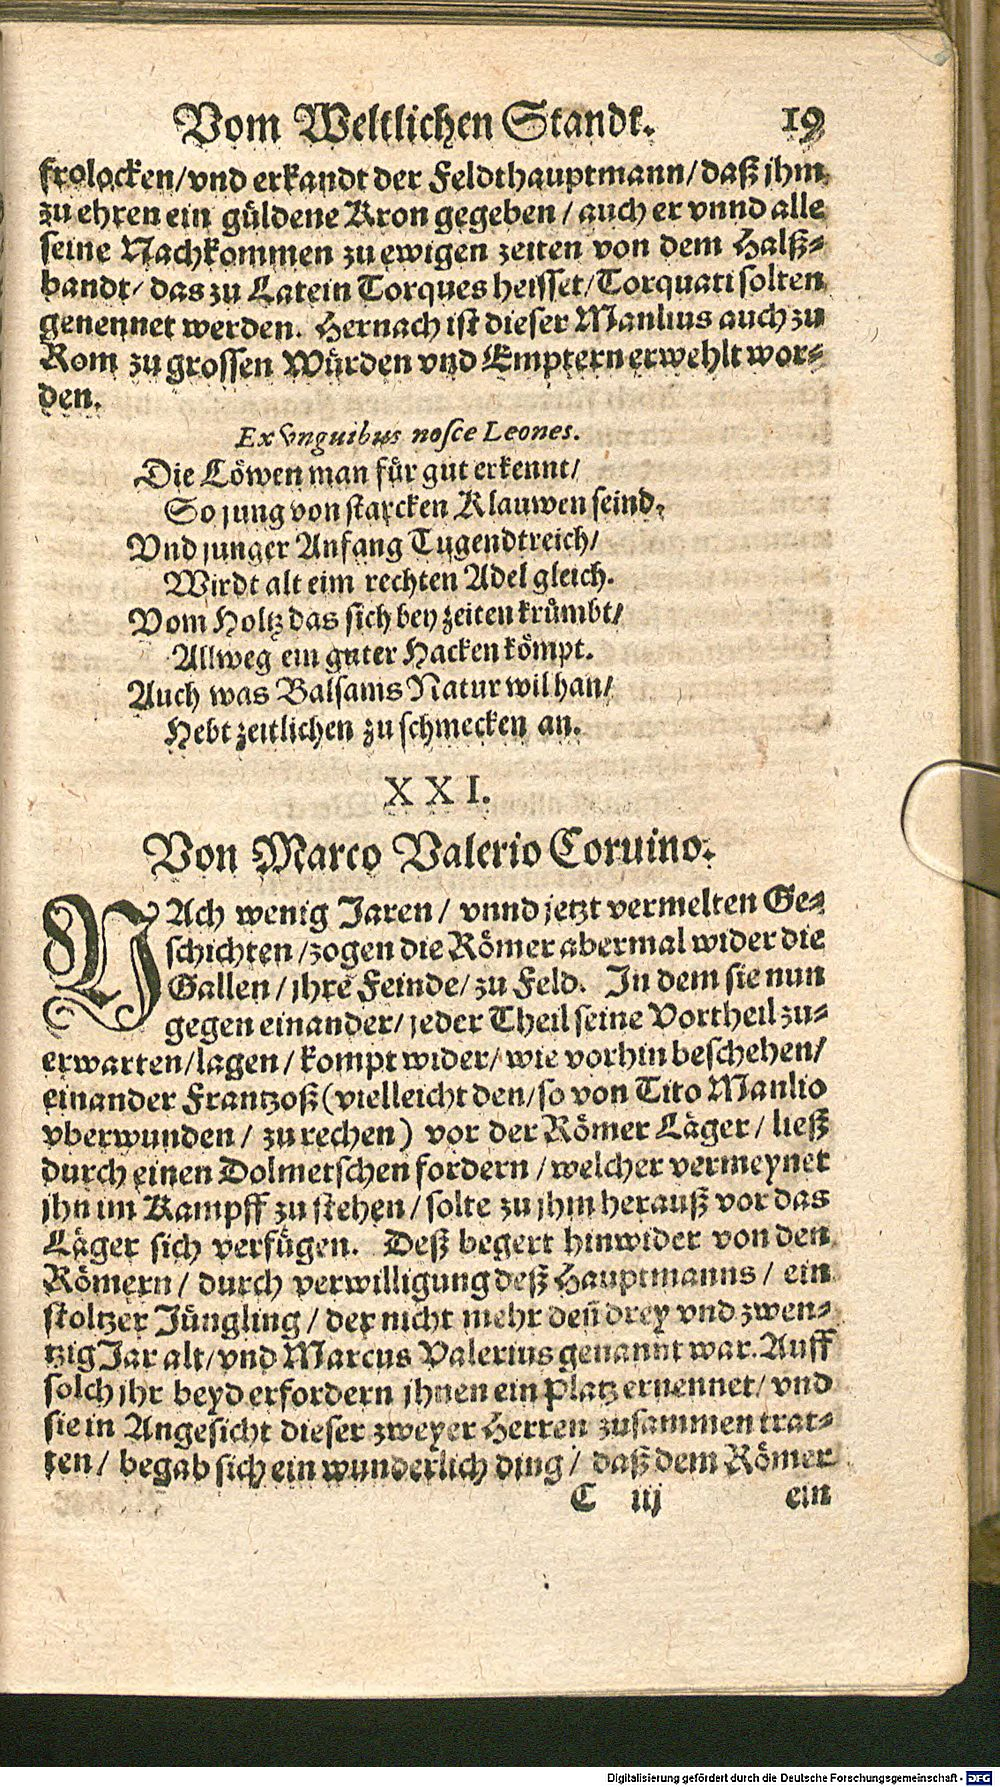 Vom Weltlichen Standt. 19
frolocken/vnd erkandt der Feldthauptmann/daß jhm
zu ehren ein güldene Kron gegeben/auch er vnnd alle
seine Nachkommen zu ewigen zeiten von dem Halß-
bandt/das zu Latein Torques heisset/Torquati solten
genennet werden. Hernach ist dieser Manlius auch zu
Rom zu grossen Würden vnd Emptern erwehlt wor-
den.
Ex vnguibus nosce Leones.
Die Löwen man für gut erkennt/
So jung von starcken Klauwen seind.
Vnd junger Anfang Tugendtreich/
Wirdt alt eim rechten Adel gleich.
Vom Holtz das sich bey zeiten krümbt/
Allweg ein guter Hacken kömpt.
Auch was Balsams Natur wil han/
Hebt zeitlichen zu schmecken an.
XXI.
Von Marco Valerio Coruino.
NAch wenig Jaren/vnnd jetzt vermelten Ge-
schichten/zogen die Römer abermal wider die
Gallen/jhre Feinde/zu Feld. In dem sie nun
gegen einander/jeder Theil seine Vortheil zu-
erwarten/lagen/kompt wider/wie vorhin beschehen/
einander Frantzoß(vielleicht den/so von Tito Manlio
vberwunden/zu rechen) vor der Römer Läger/ließ
durch einen Dolmetschen fordern/welcher vermeynet
jhn im Kampff zu stehen/solte zu jhm herauß vor das
Läger sich verfügen. Deß begert hinwider von den
Römern/durch verwilligung deß Hauptmanns/ein
stoltzer Jüngling/der nicht mehr deñ drey vnd zwen-
tzig Jar alt/vnd Marcus Valerius genannt war. Auff
solch jhr beyd erfordern jhnen ein Platz ernennet/vnd
sie in Angesicht dieser zweyer Herren zusammen trat-
ten/begab sich ein wunderlich ding/daß dem Römer
C iij ein
Digitalisierung gefördert durch die Deutsche Forschungsgemeinschaft - DFG